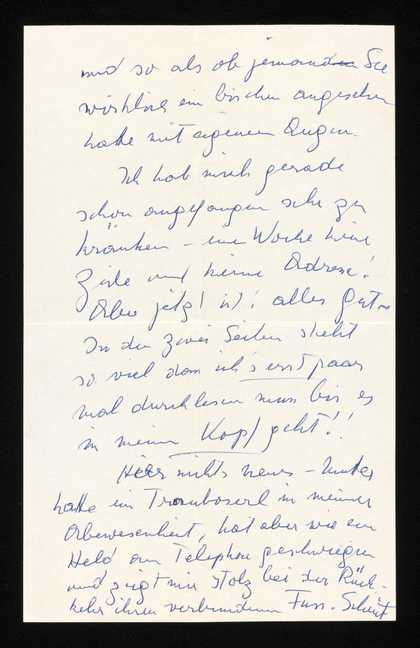 und so als ob jemand Sie
wirklich ein bischen angesehen
hatte mit eigenen Augen.
Ich hab mich gerade
schon angefangen sehr zu
kränken – eine Woche keine
Zeile und keine Adresse!
Aber jetzt ist! alles Gut –
In den zwei Seiten steht
so viel dass ich's erst paar
mal durchlesen muss bis es
in meinen Kopf geht!!
Hier nichts neues – Mutter
hatte ein Tromboserl in meiner
Abwesenheit, hat aber wie ein
Held am Telephon geschwiegen
und zeigt mir stolz bei der Rück-
kehr ihren verbundenen Fuss.